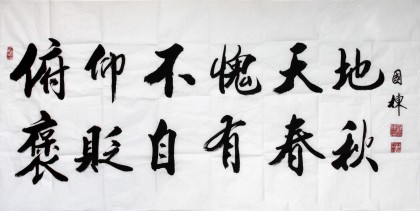 俯仰不愧天地
褒贬自有春秋
国栋